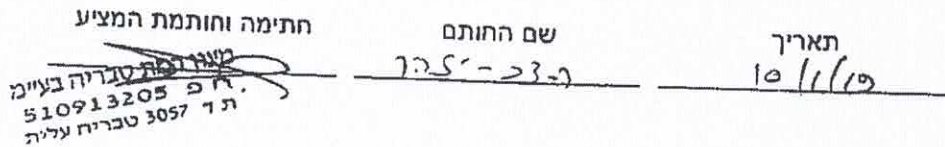 תאריך שם החותם חתימה וחותמת המציע
10/1/19
טבריה בעיימ
ח.פ 510913205
ת ד 3057 טבריה עלית